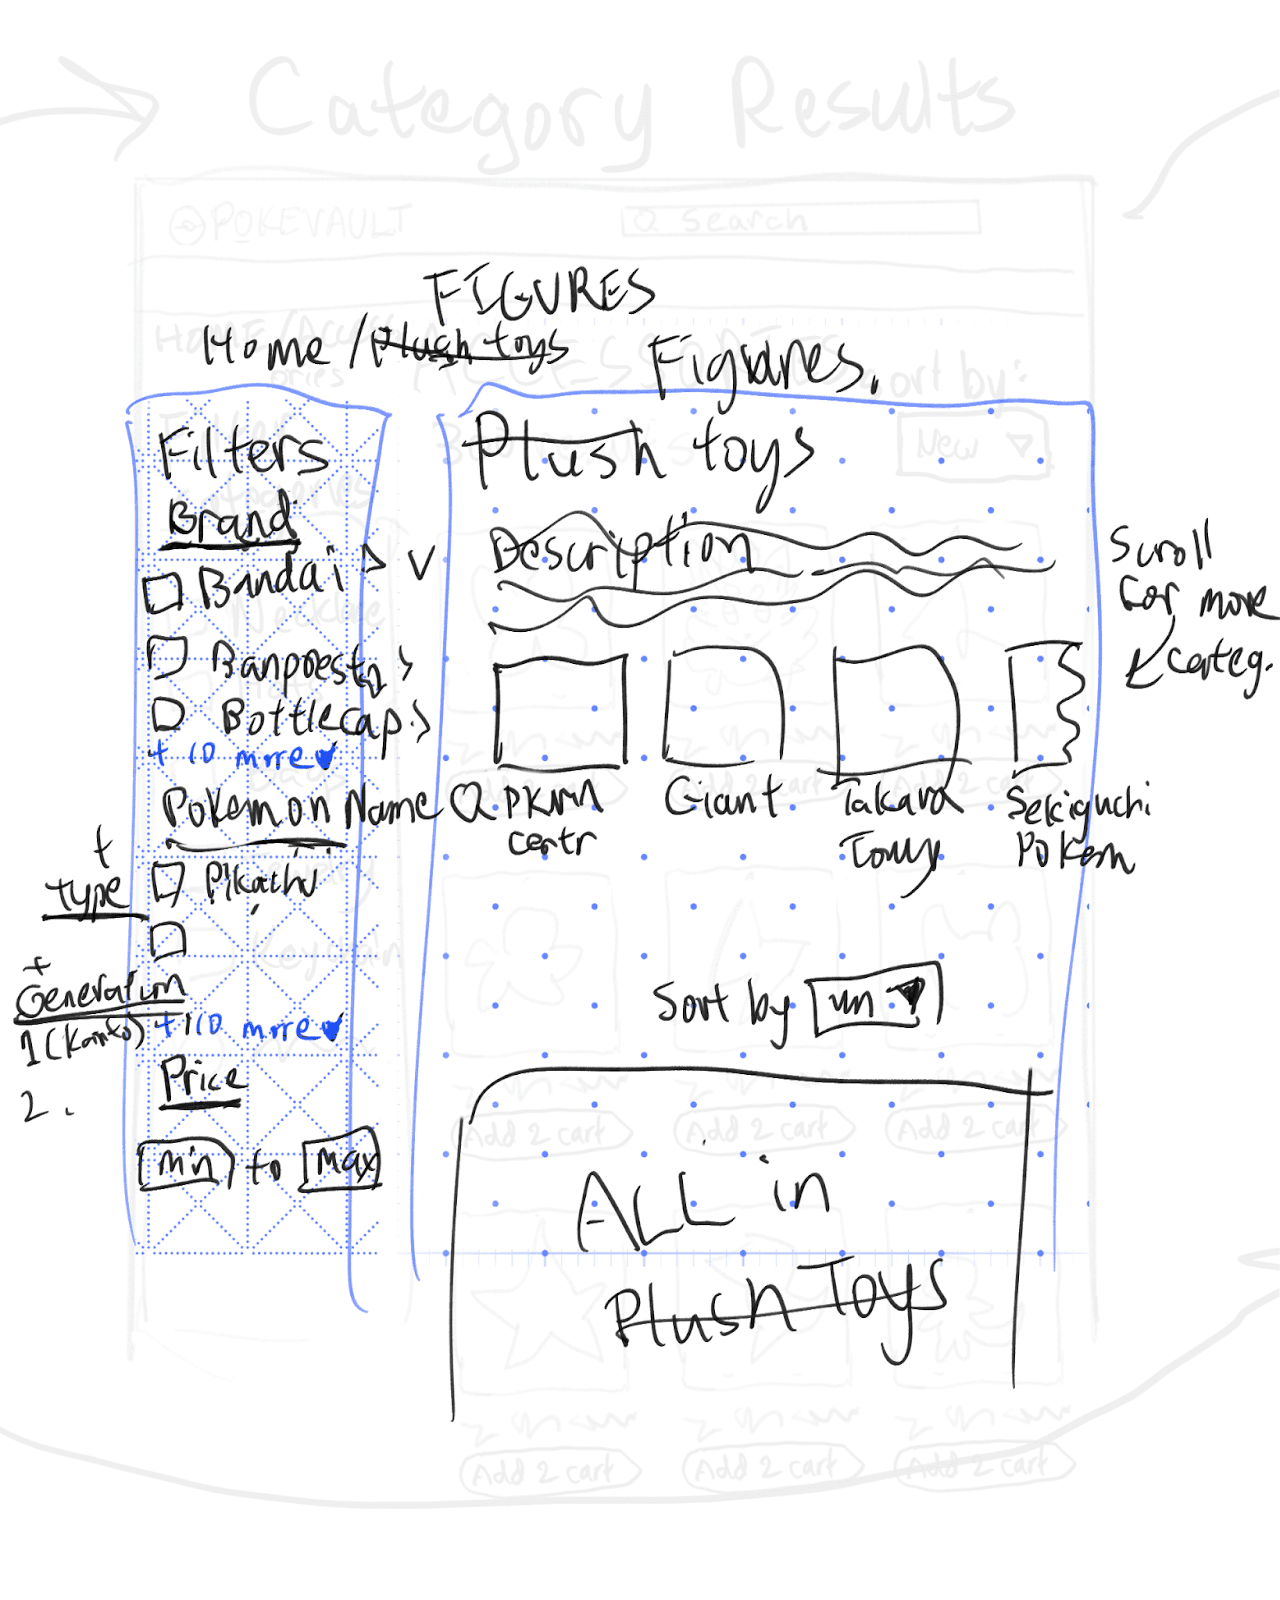 Category Results
POKEVAULT
Search
FIGURES
HOME/Access
ories
Home / Plush toys
Figures.
ACCESSORIES
Sort by:
New
Filters
Plush toys
Brand
Bandai
Description
Scroll
for more
categ.
Necklace
Banpresto
Bottlecaps
+ 10 more
Pokemon Name
PKMN
centr
Giant
Takara
Tomy
Sekiguchi
Pokem
+
type
Pikachu
Keychain
+
Generation
1 (Kanto)
2.
+ 10 more
Sort by
Price
min to max
Add 2 cart
Add 2 cart
Add 2 cart
ALL in
Plush Toys
Add 2 cart
Add 2 cart
Add 2 cart